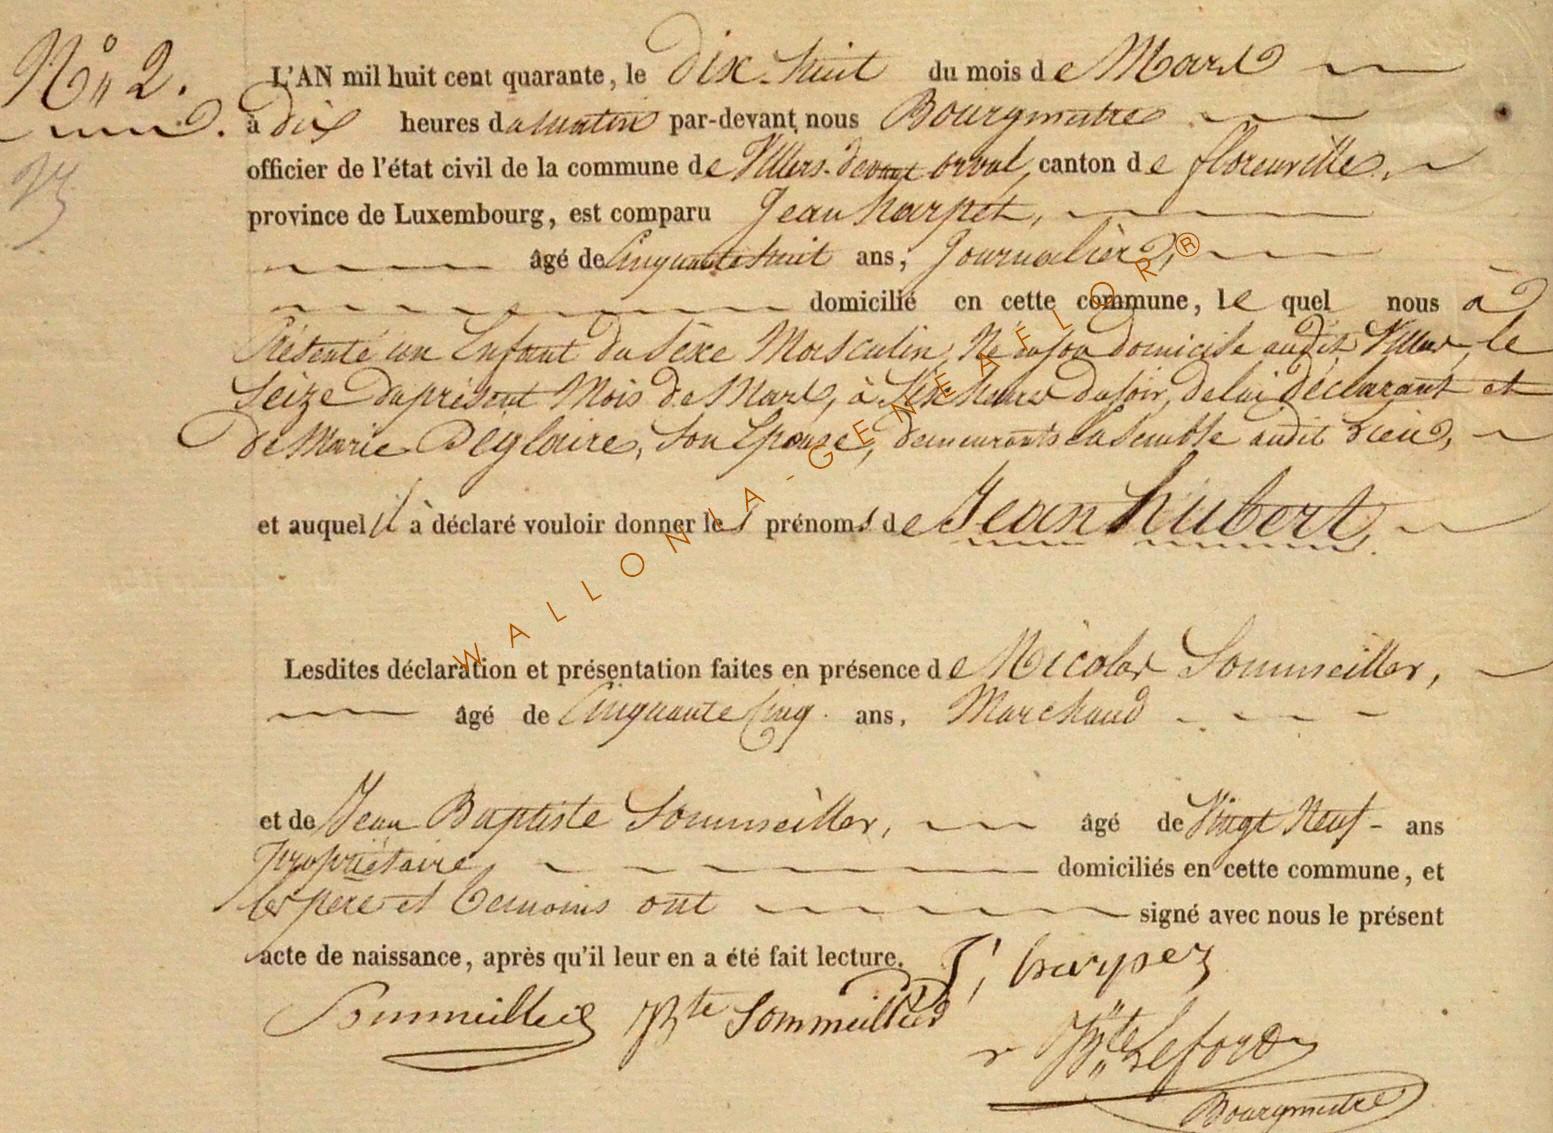 N° 2.
L'AN mil huit cent quarante, le dix-huit du mois de Mars
à dix heures du matin par-devant nous Bourgmestre
officier de l'état civil de la commune de Villers-devant orval, canton de florenville,
province de Luxembourg, est comparu Jean harpet,
âgé de Cinquante huit ans, Journalier,
domicilié en cette commune, le quel nous à
Présenté un Enfant du Sexe Masculin, Né en son domicile audit Villers, le
Seize du présent Mois de Mars, à Six heures du soir, de lui déclarant et
de Marie Deglaire, Son Epouse, demeurants ensemble audit Lieu,
et auquel il à déclaré vouloir donner les prénoms de Jean hubert,
Lesdites déclaration et présentation faites en présence de Nicolas Sommeiller,
âgé de Cinquante Cinq ans, Marchand
et de Jean Baptiste Sommeiller, âgé de Vingt Neuf - ans
propriétaire domiciliés en cette commune, et
les père et temoins ont signé avec nous le présent
acte de naissance, après qu'il leur en a été fait lecture. J, harpez
Sommeillier JBte Sommeillier
Bourgmestre
WALLONIA-GENEAFLOR®